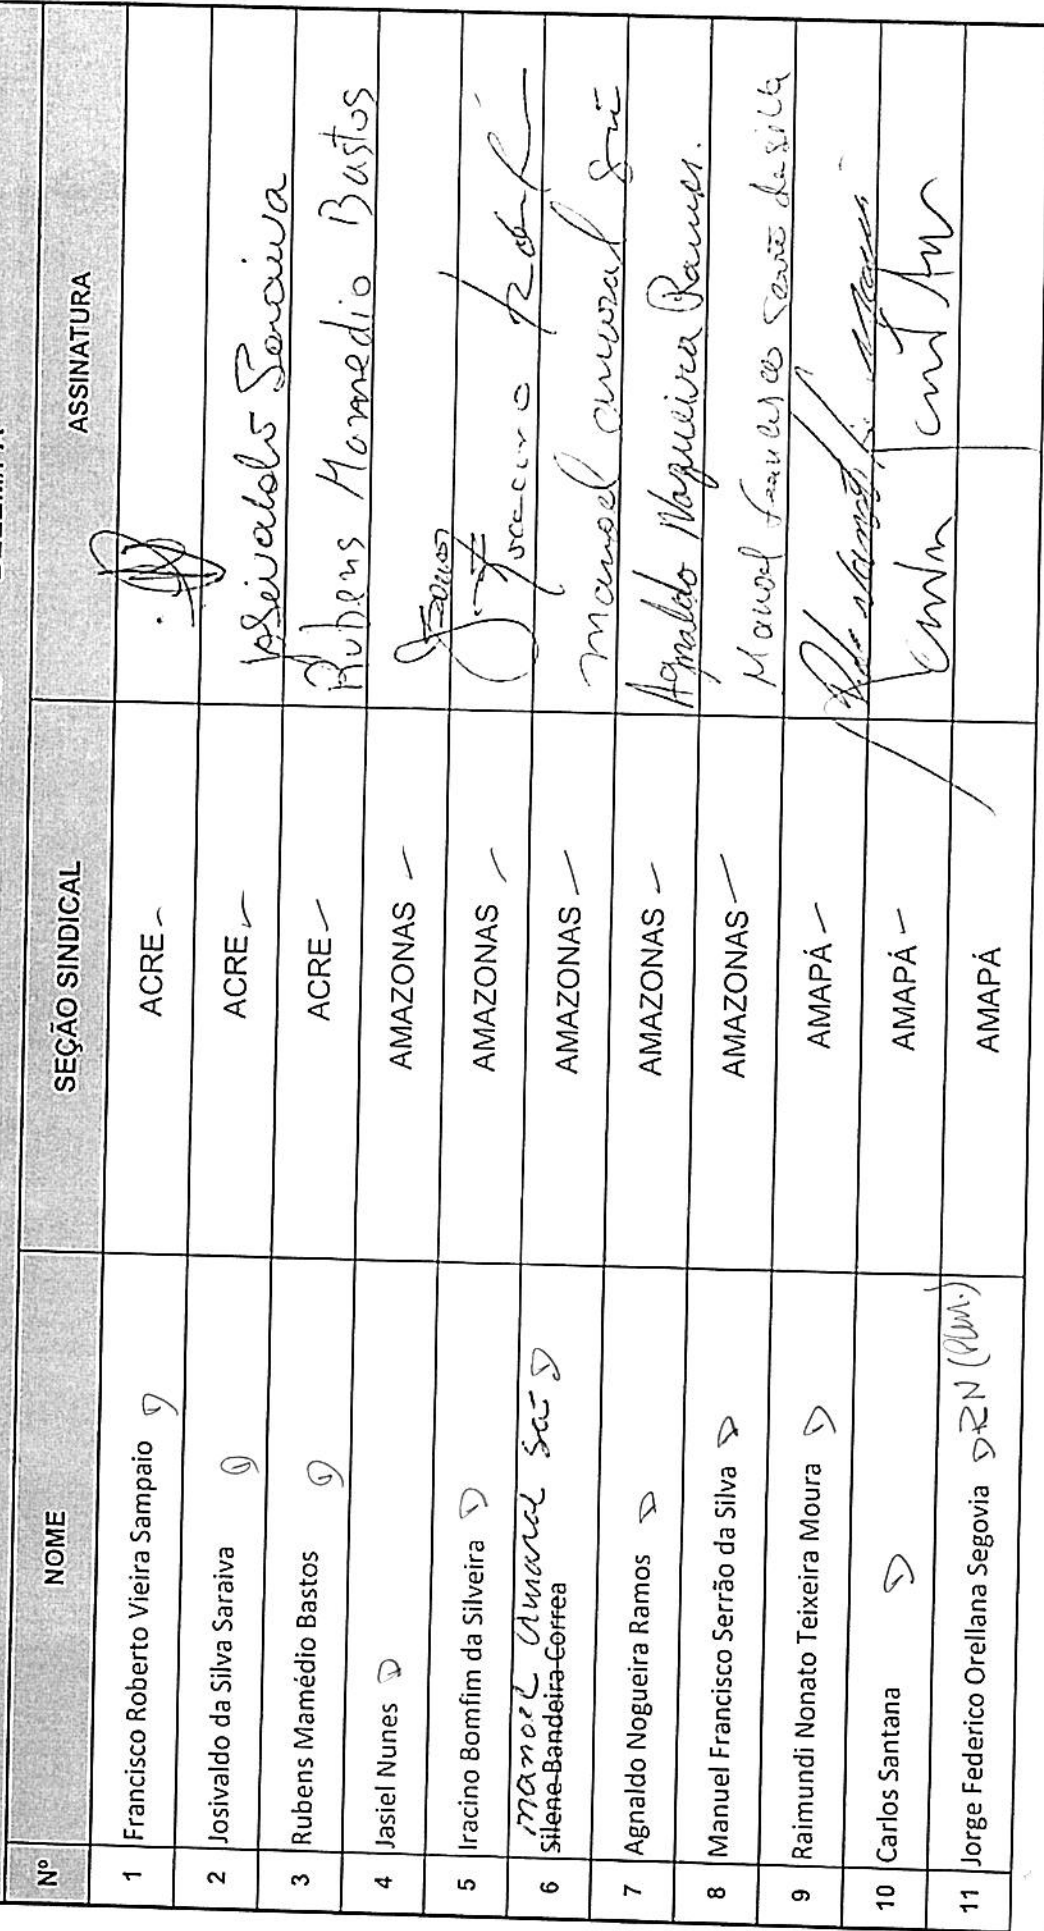 Nº NOME SEÇÃO SINDICAL ASSINATURA
1 Francisco Roberto Vieira Sampaio ACRE
2 Josivaldo da Silva Saraiva ACRE Joseivaldo Saraiva
3 Rubens Mamédio Bastos ACRE Rubens Mamedio Bastos
4 Jasiel Nunes AMAZONAS
5 Iracino Bomfim da Silveira AMAZONAS
manoel Amaral Sá
6 Silene Bandeira Correa AMAZONAS manoel amaral Sá
7 Agnaldo Nogueira Ramos AMAZONAS Agnaldo Nogueira Ramos.
8 Manuel Francisco Serrão da Silva AMAZONAS Manoel da silva
9 Raimundi Nonato Teixeira Moura AMAPÁ
10 Carlos Santana AMAPÁ
11 Jorge Federico Orellana Segovia DRN AMAPÁ